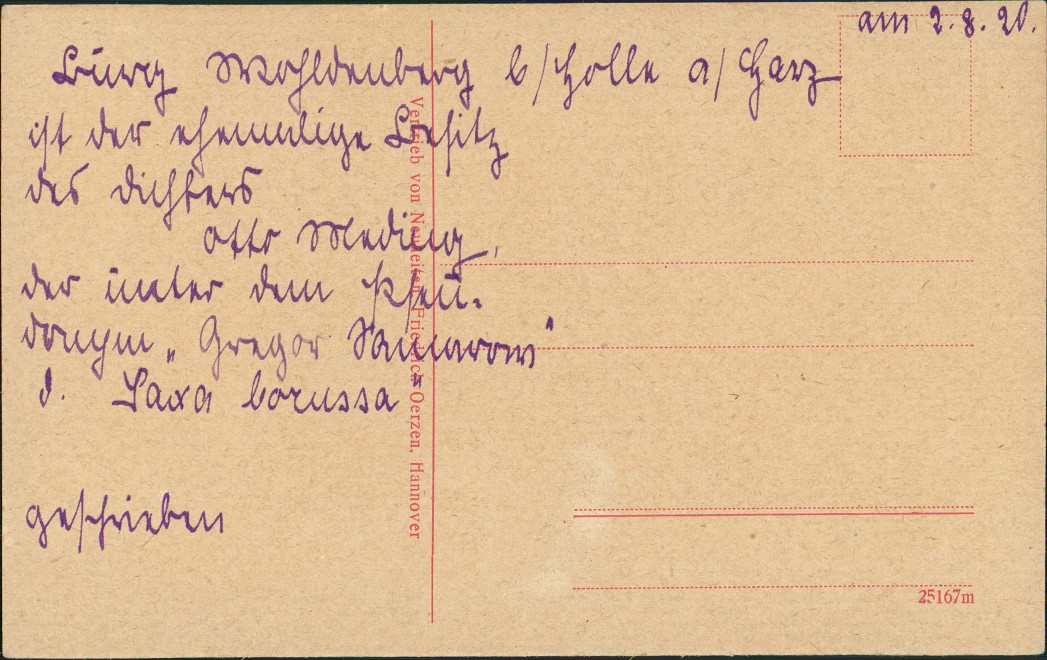 am 2.8.20.
Burg Wohldenberg b/Holle a/Harz
ist der ehemalige Besitz
des Dichters
Otto Meding,
der unter dem Pseu-
donym „Gregor Samarow"
d. Saxa borussa"
geschrieben
Vertrieb von Neuheiten Friedrich Oerzen, Hannover
25167m